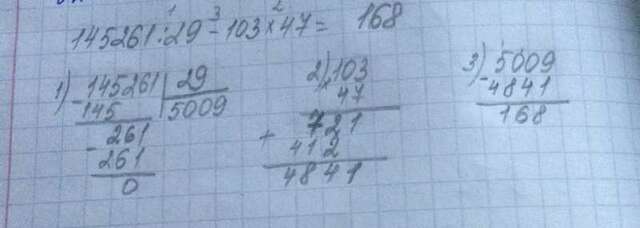 1 3 2
145261:29-103×47= 168
1) -145261 | 29
145 | 5009
-261
261
0
2) 103
× 47
721
+
412
4841
3) -5009
4841
168